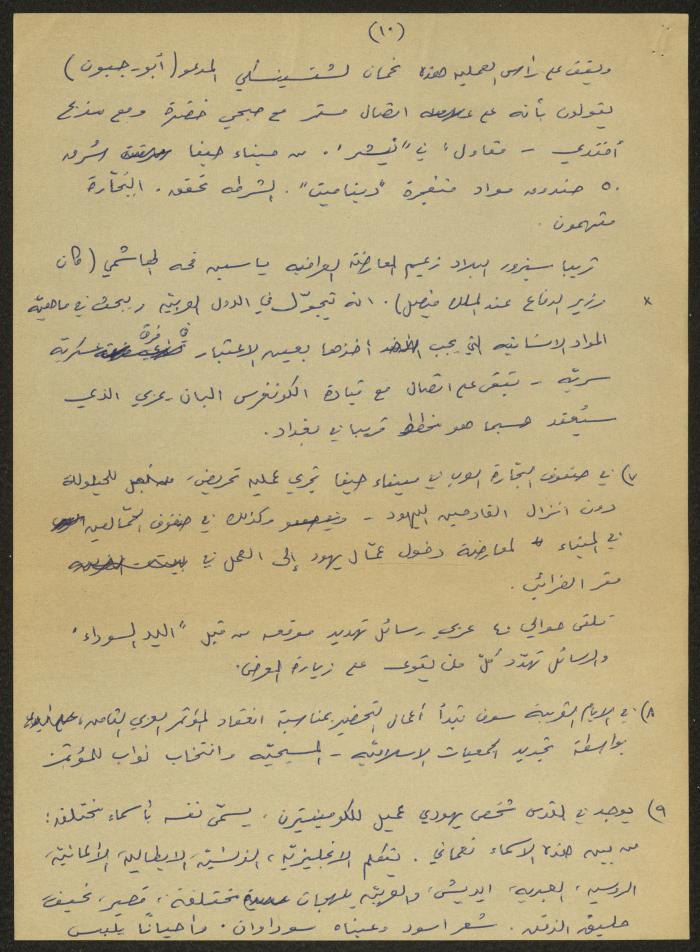 (١٠)
ويقف على رأس العملية هذه نحمان لشتسينسكي المدعو (أبو رجبون)
يقولون بأنه على اتصال مستمر مع صبحي خضرة ومع
أفندي - مقاول في "نيشر". من ميناء حيفا سرق
٥٠ صندوق مواد متفجرة "ديناميت". الشرطة تحقق. البحّارة
متهمون.
قريبا سيزور البلاد زعيم المعارضة العراقية ياسين فحه الهاشمي (كان
x وزير الدفاع عند الملك فيصل). انه يتجوّل في الدول العربية ويبحث في ماهيّة
المواد الانشائية التي يجب أخذها بعين الاعتبار فرق عسكرية
سريّة - تبقى على اتصال مع قيادة الكونغرس البان-عربي الذي
سيُعقد حسبما هو مخطط قريبا في بغداد.
٧) في صفوف البحّارة العرب في ميناء حيفا تجري عملية تحريض، للحيلولة
دون انزال القادمين اليهود - وكذلك في صفوف الحمّالين
في الميناء لمعارضة دخول عمّال يهود إلى العمل في
مقر الضرائب.
تلقى حوالي ٤٠ عربي رسائل تهديد موقعه من قبل "اليد السوداء"
والرسائل تهدّد كلّ من يقوى على زيارة المعرض.
٨) في الايام القريبة سوف تبدأ أعمال التحضير بمناسبة انعقاد المؤتمر العربي الثامن،
بواسطة تجديد الجمعيات الاسلاميّة - المسيحيّة وانتخاب نواب للمؤتمر
٩) يوجد في القدس شخص يهودي عميل للكومينتيرن، يسمّى نفسه بأسماء مختلفة:
من بين هذه الاسماء نعماني. يتكلم الانجليزيّة، الفرنسيّة، الايطالية، الألمانيّة،
الروسية، العبرية، ايديش، والعربيّه بلهجات مختلفة، قصير، نحيف،
حليق الذقن. شعر اسود وعيناه سوداوان. وأحياناً يلبس